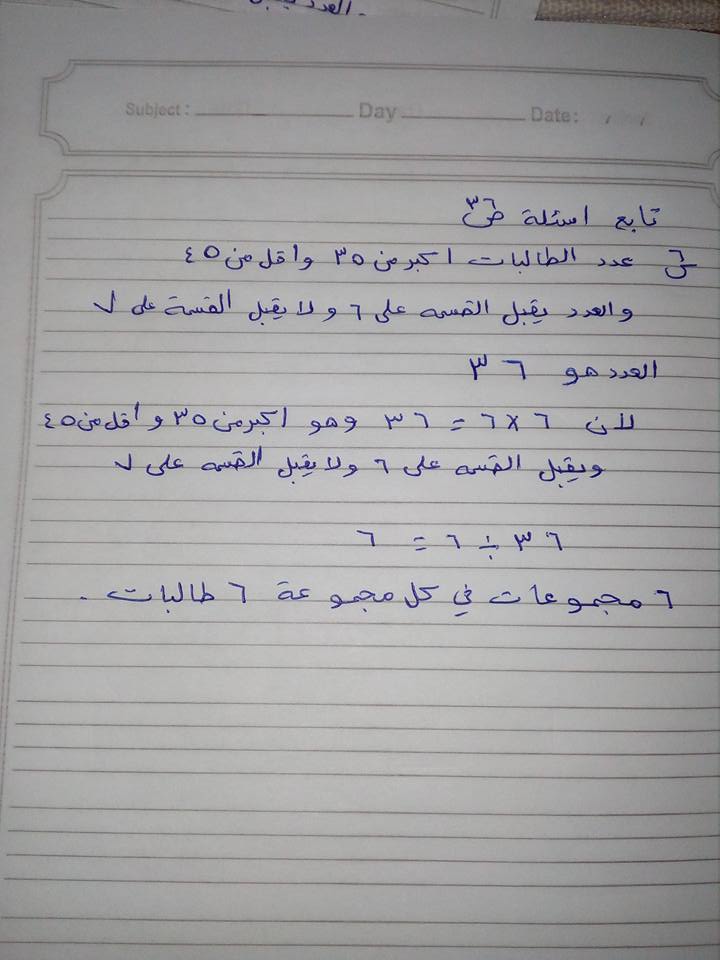 العدد
Subject : Day Date: / /
تابع اسئلة ص٣٦
س٦ عدد الطالبات اكبر من ٣٥ وأقل من ٤٥
والعدد يقبل القسمه على ٦ ولا يقبل القسمة على ٧
العدد هو ٣٦
لأن ٦ × ٦ = ٣٦ وهو اكبر من ٣٥ وأقل من ٤٥
ويقبل القسمه على ٦ ولا يقبل القسمه على ٧
٣٦ ÷ ٦ = ٦
٦ مجموعات في كل مجموعة ٦ طالبات .